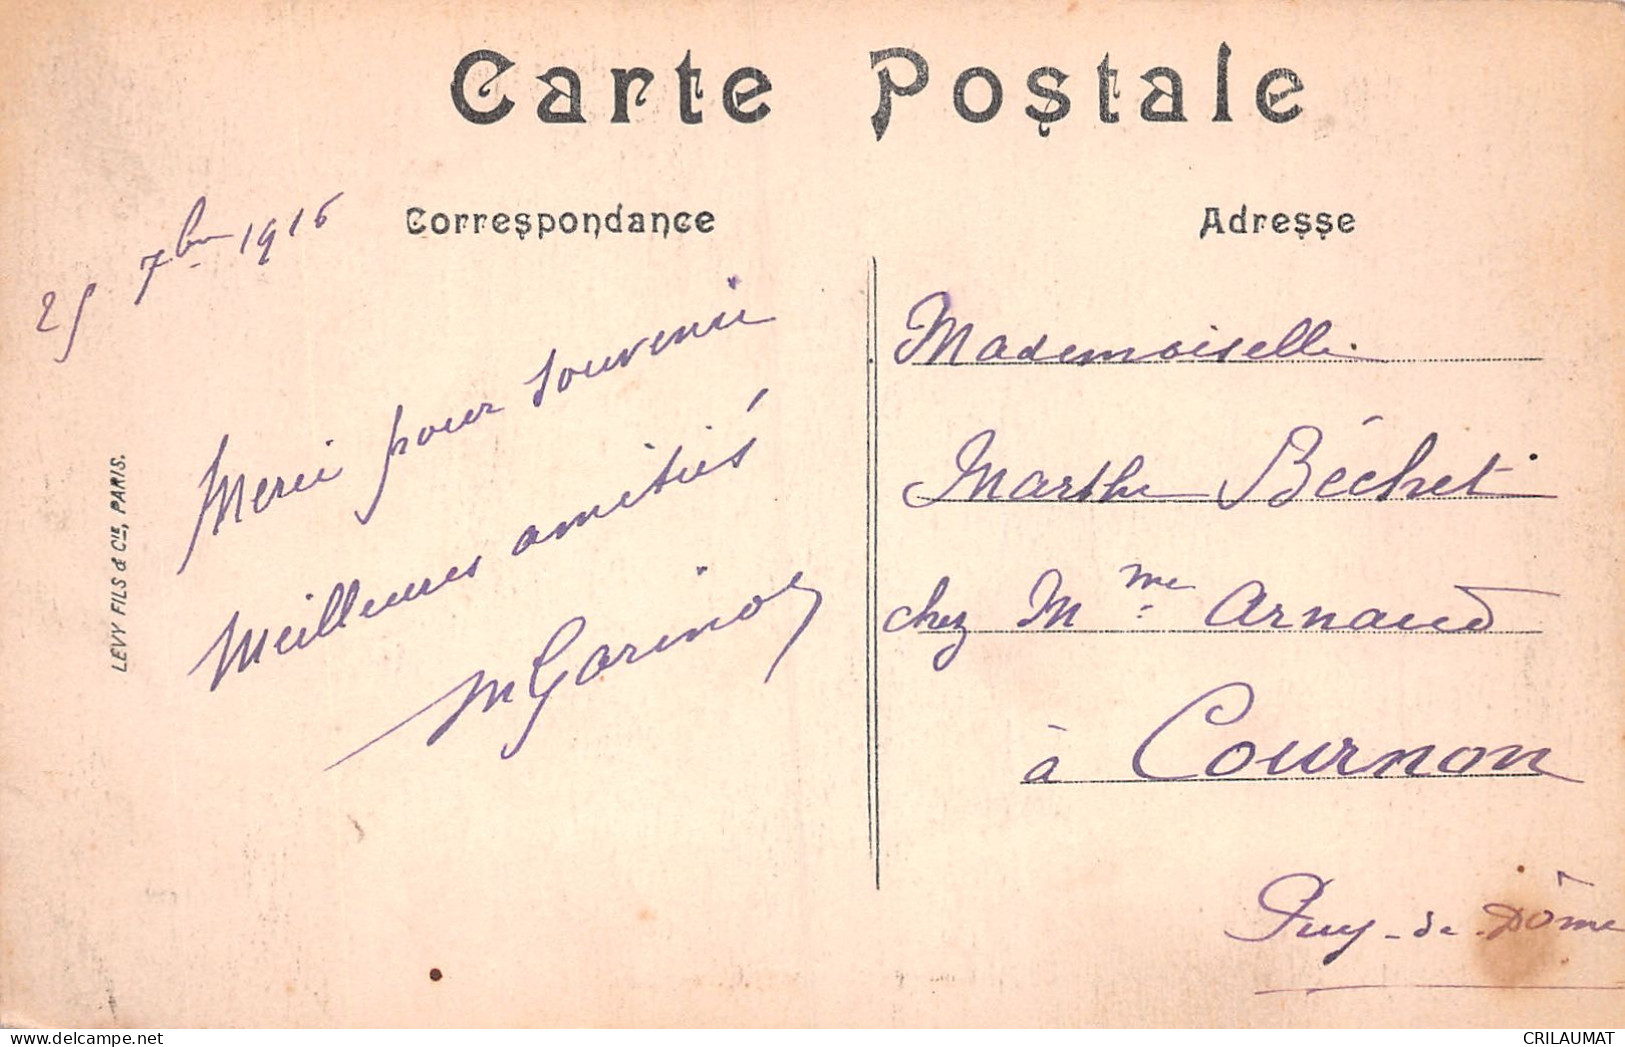 Carte Postale
Correspondance
Adresse
25 7bre 1916
Merci pour souvenir
Meilleures amitiés
MGarinot
LEVY FILS & Cie, PARIS.
Mademoiselle
Marthe Béchet
chez Mme Arnaud
à Cournon
Puy-de-Dôme
CRILAUMAT